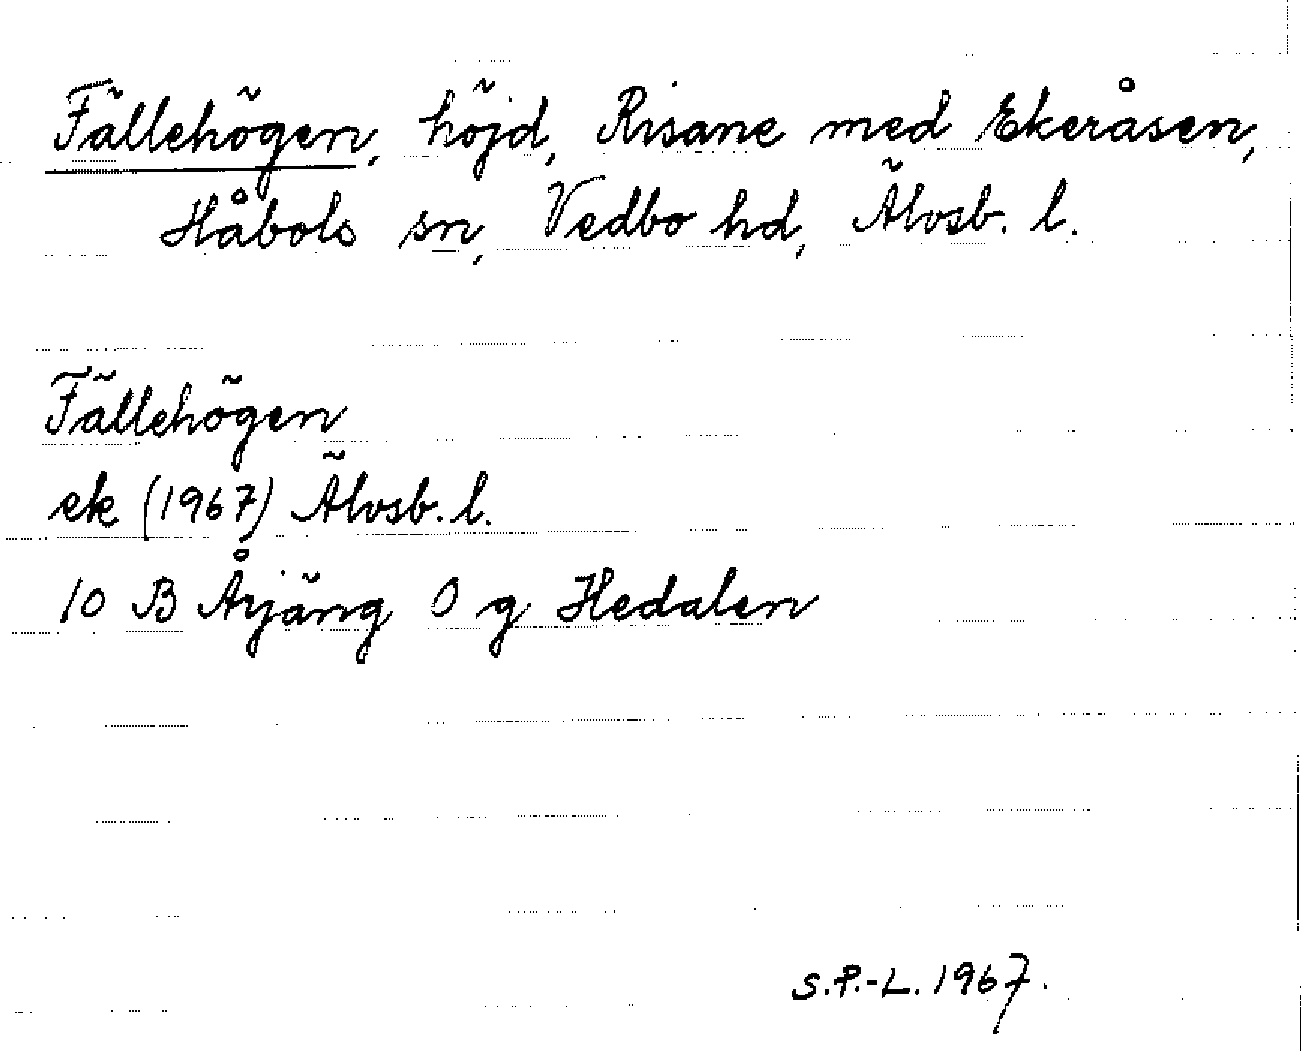 Fällehögen, höjd, Risane med Ekeråsen,
Håbols sn, Vedbo hd, Älvsb. l.
Fällehögen
ek (1967) Älvsb. l.
10 B Årjäng 0 g Hedalen
S.P.-L. 1967.